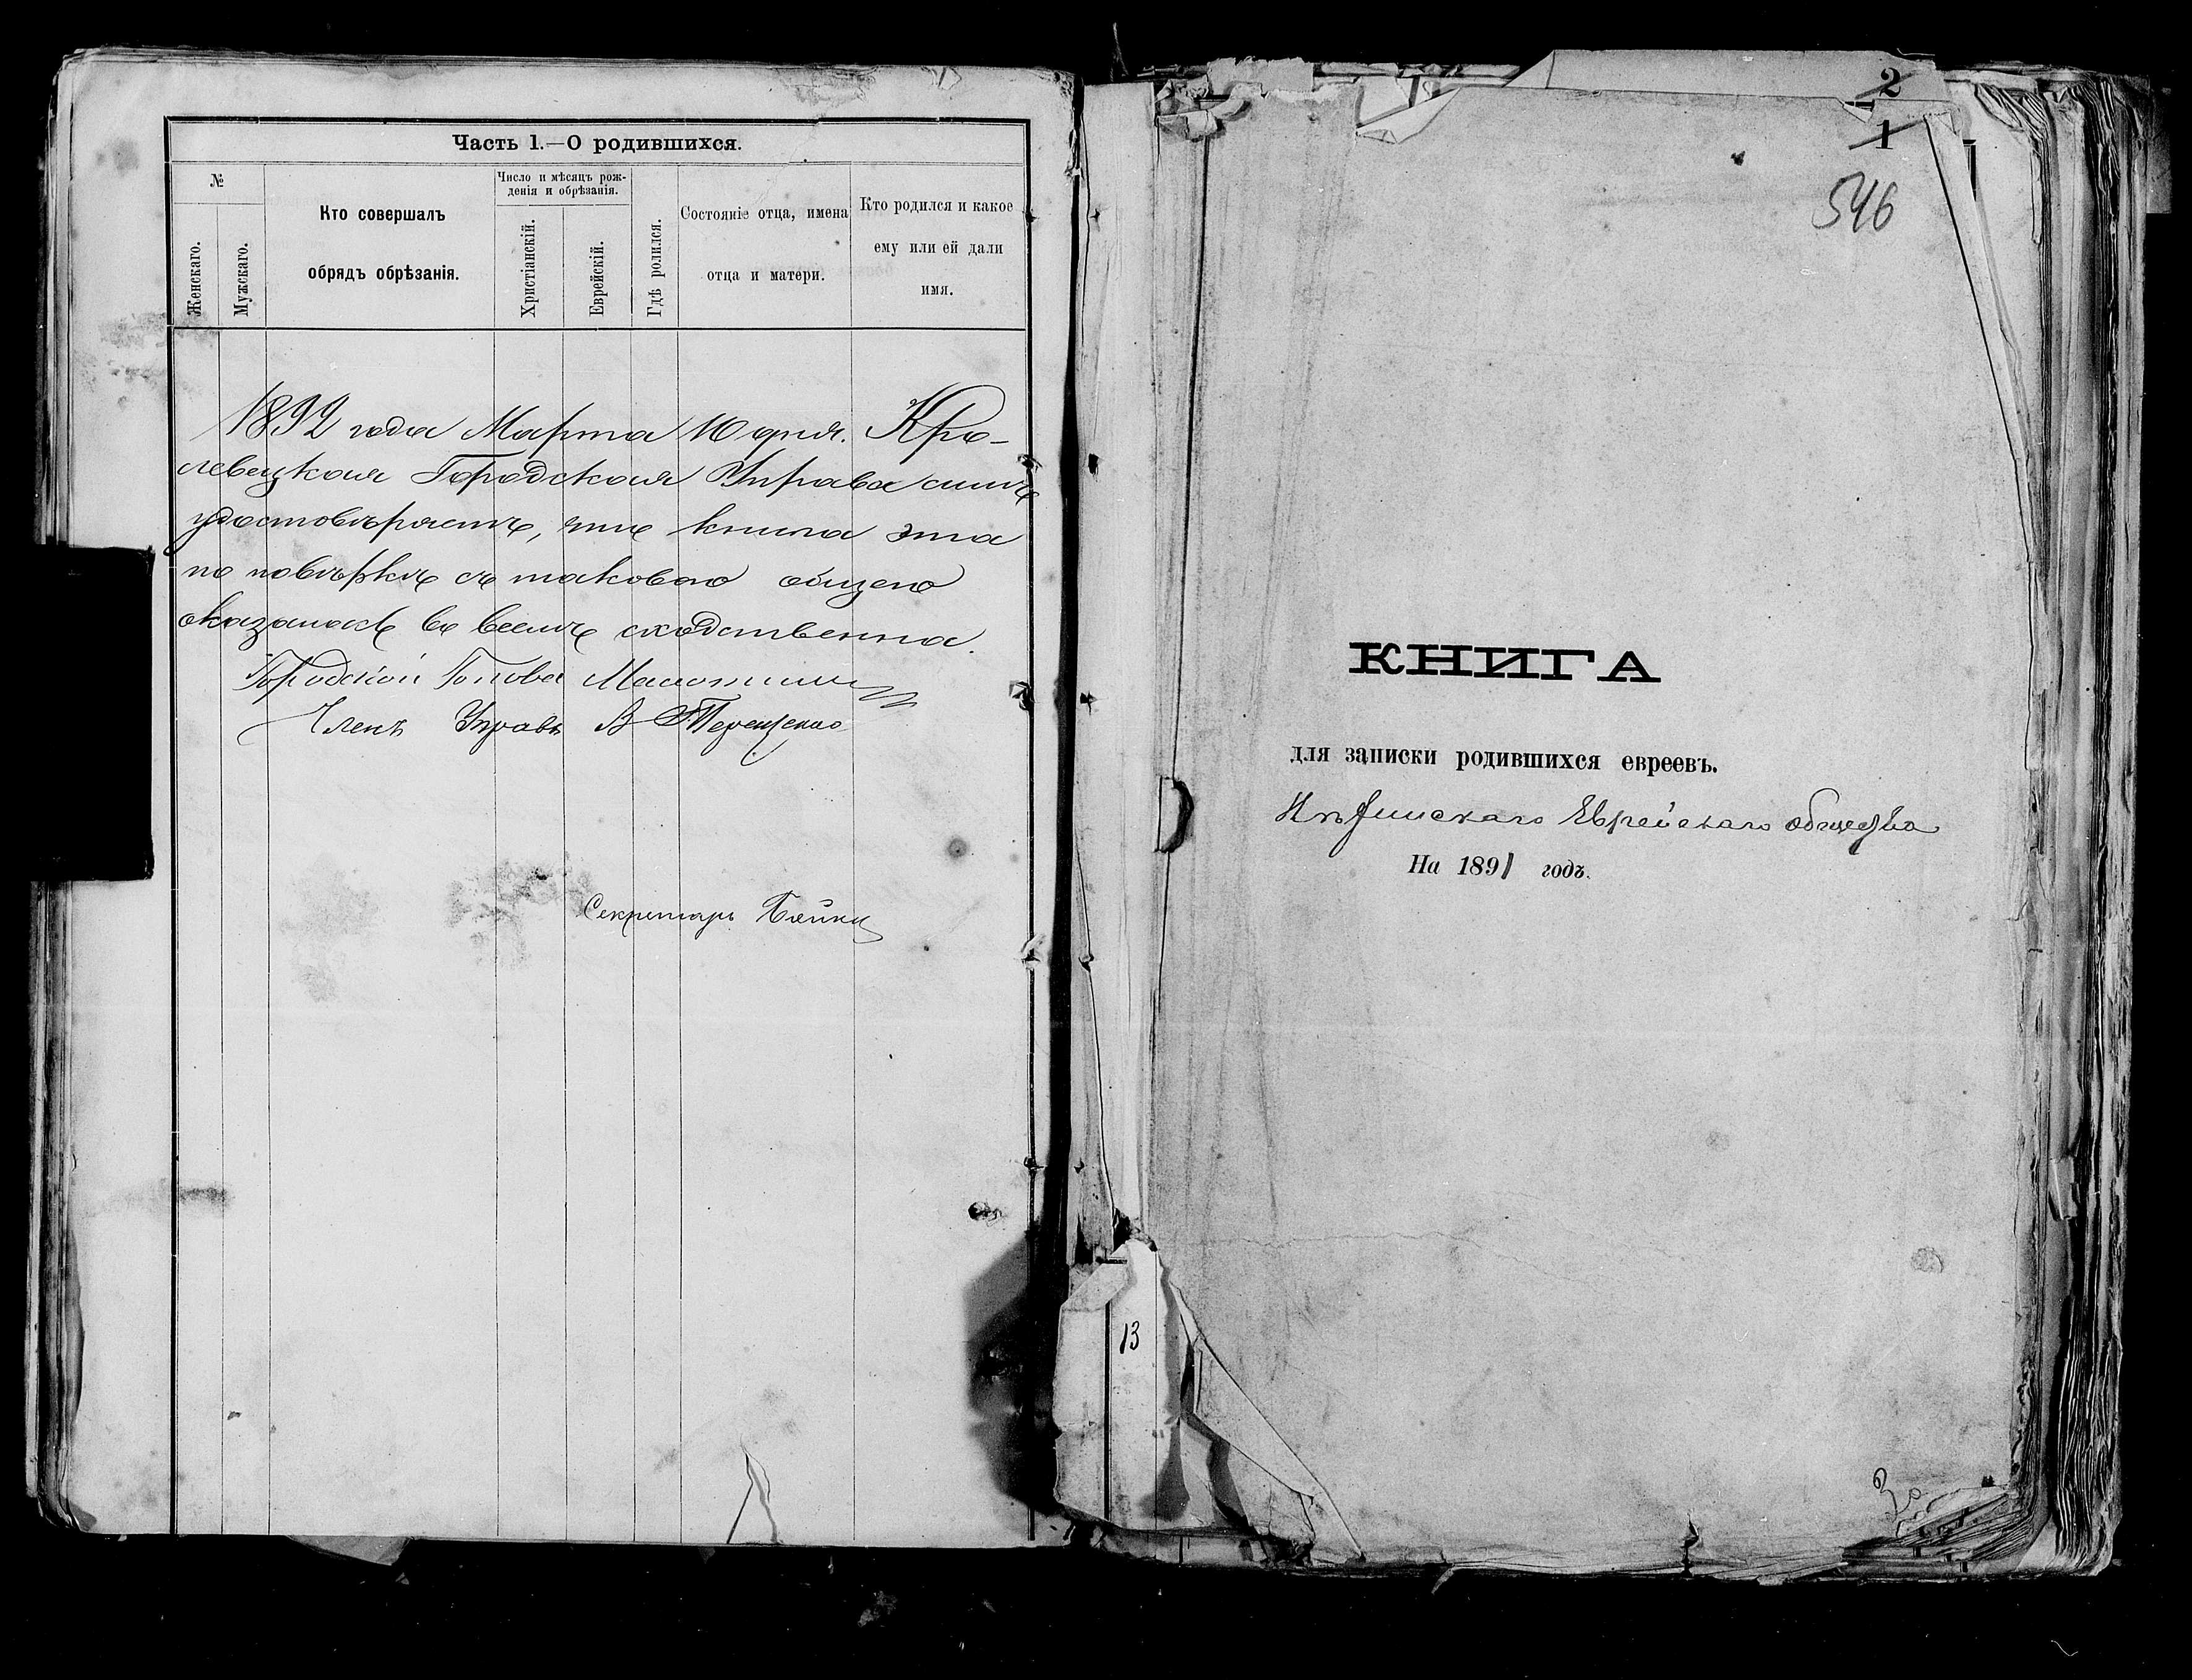 Часть 1.—О родившихся.
№
Женскаго.
Мужскаго.
Кто совершалъ
обрядъ обрѣзанія.
Число и мѣсяцъ рож-
денія и обрѣзанія.
Христіанскій.
Еврейскій.
Гдѣ родился.
Состояніе отца, имена
отца и матери.
Кто родился и какое
ему или ей дали
имя.
1892 года Марта 10 дня. Кро-
левецкая Городская Управа симъ
удостовѣряетъ, что книга эта
по повѣркѣ съ таковою общею
оказалась во всемъ сходственна.
Городской Голова
Членъ Управы В Терещенко
Секретарь
2
1
546
КНИГА
для записки родившихся евреевъ.
Нѣжинскаго Еврейскаго общества
На 1891 годъ.
13